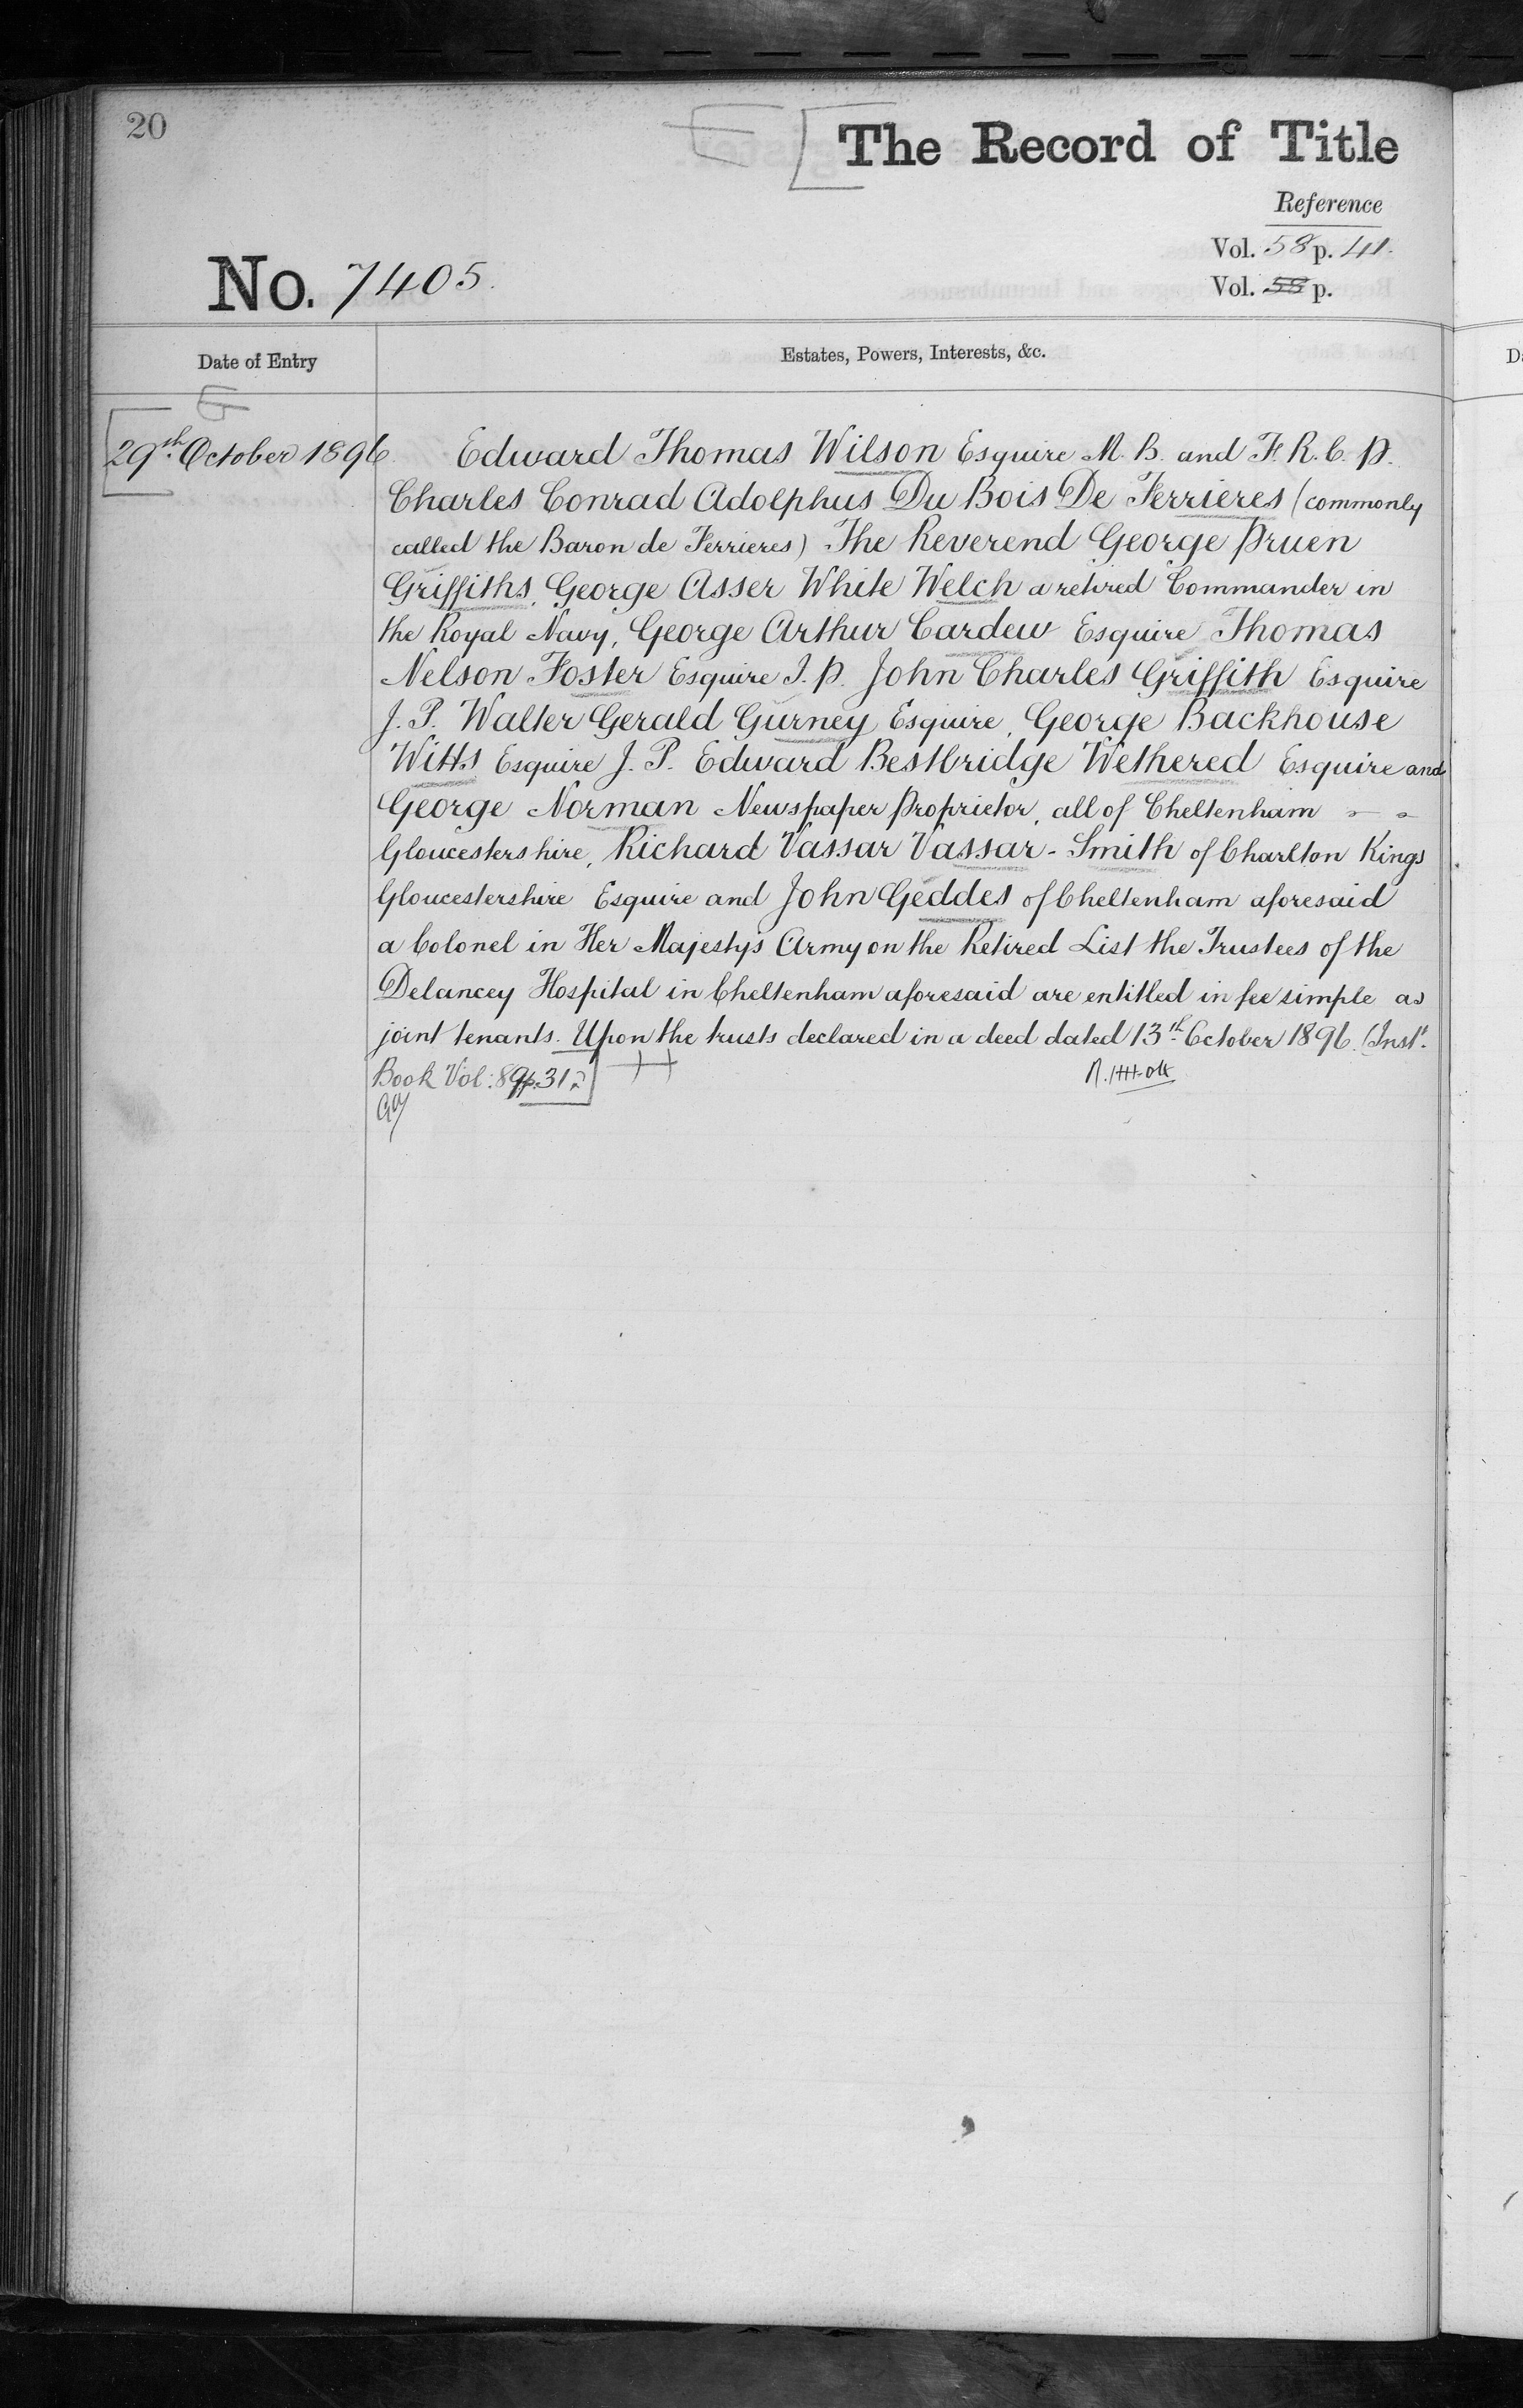 20
The Record of Title
Reference
Vol. 58 p. 41.
Vol. 58 p.
No. 7405.
Date of Entry
Estates, Powers, Interests, &c.
29th October 1896
Edward Thomas Wilson Esquire M. B. and F. R. C. P.
Charles Conrad Adolphus Du Bois De Ferrieres (commonly
called the Baron de Ferrieres) The Reverend George Pruen
Griffiths, George Asser White Welch a retired Commander in
the Royal Navy, George Arthur Cardew Esquire Thomas
Nelson Foster Esquire J. P. John Charles Griffith Esquire
J. P. Walter Gerald Gurney Esquire, George Backhouse
Witts Esquire J. P. Edward Bestbridge Wethered Esquire and
George Norman Newspaper Proprietor, all of Cheltenham
Gloucestershire, Richard Vassar Vassar-Smith of Charlton Kings
Gloucestershire Esquire and John Geddes of Cheltenham aforesaid
a Colonel in Her Majesty's Army on the Retired List the Trustees of the
Delancey Hospital in Cheltenham aforesaid are entitled in fee simple as
joint tenants. Upon the trusts declared in a deed dated 13th October 1896. (Inst.
Book Vol: 89 p. 31)